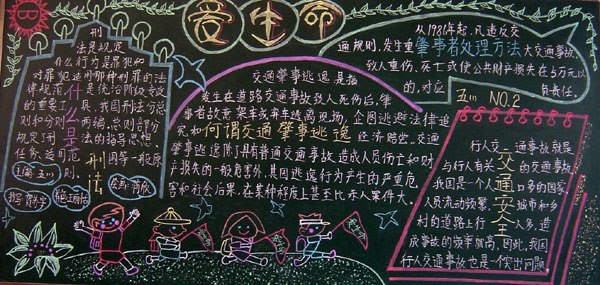 爱生命
刑
法是规定
什么行为是罪犯和
对罪犯适用那种刑罚的法
律规范
是统治阶级专政
的重要工具
我国刑法分总
则和分则
两编,总则部份
规定了刑
法的指导思想
任务、适用范
围等一般原
则
什么是刑法
交通肇事逃逸是指
发生在道路交通事故致人死伤后,肇
事者故意乘车或弃车逃离现场,企图逃避法律追
究和
经济赔偿,交通
何谓交通肇事逃逸
肇事逃逸除了具有普通交通事故造成人员伤亡和财
产损失的一般危害外,其因逃逸行为产生的严重危
害和社会后果,在某种程度上甚至比杀人案件大。
从1986年起,凡违反交
通规则,发生重
大交通事故
肇事者处理方法
致人重伤、死亡或使公共财产损失在5万元以
的,对应
负责任。
五(1) NO.2
行人交
通事故就是
与行人有关
的交通事故,
我国是一个人
口多的国家,
人民流动频繁,
城市和乡
村的道路上行
人多,造
成事故的频率就高,因此,我国
行人交通事故也是一个突出问题
交通安全